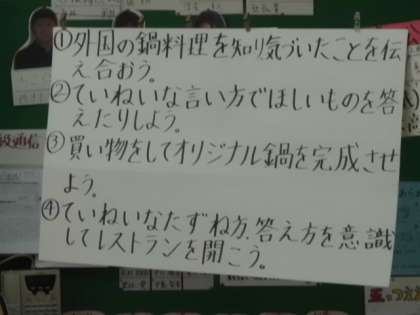 ①外国の鍋料理を知り気づいたことを伝
え合おう。
②ていねいな言い方でほしいものを答
えたりしよう。
③買い物をしてオリジナル鍋を完成させ
よう。
④ていねいなたずね方、答え方を意識
してレストランを開こう。
級通信